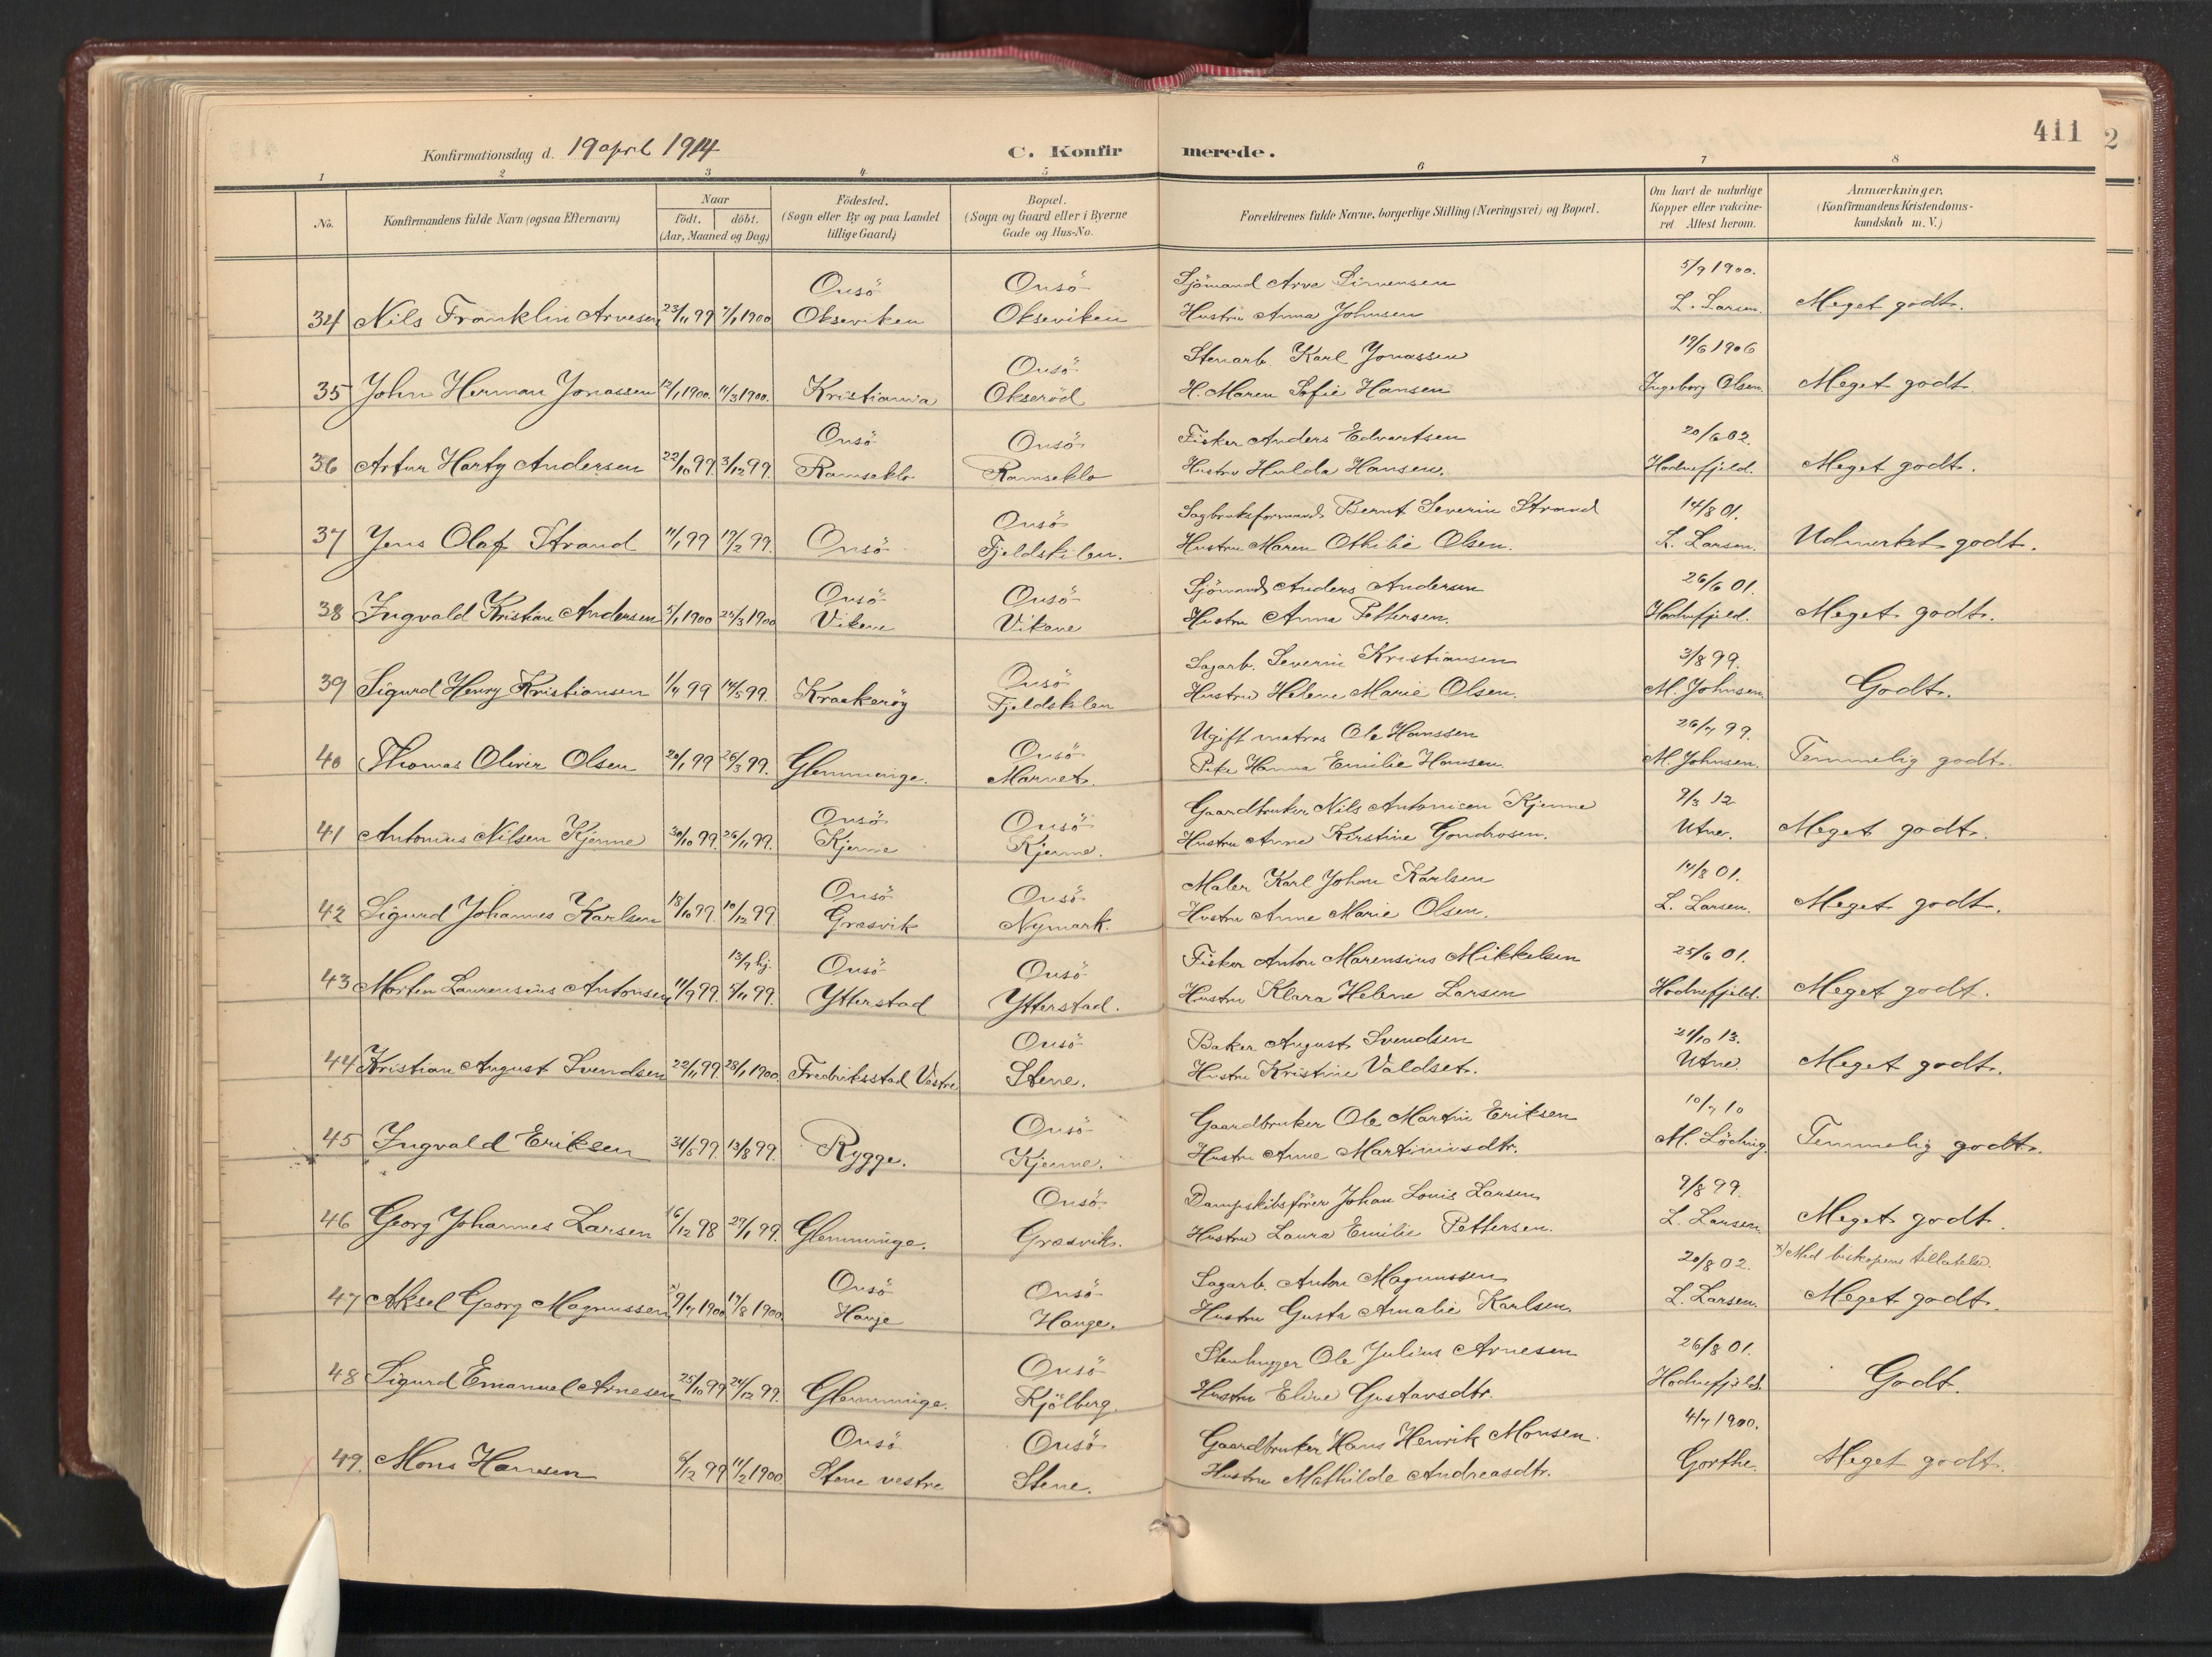 411
2
Konfirmationsdag d. 19 april 1914
C. Konfirmerede.
1 2 3 4 5 6 7 8
No.
Konfirmandens fulde Navn (ogsaa Efternavn)
Naar
födt. döbt.
(Aar, Maaned og Dag)
Födested.
(Sogn eller By og paa Landet
tillige Gaard)
Bopæl.
(Sogn og Gaard eller i Byerne
Gade og Hus-No.
Forældrenes fulde Navne, borgerlige Stilling (Næringsvei) og Bopæl.
Om havt de naturlige
Kopper eller vakcine-
ret Attest herom.
Anmærkninger.
(Konfirmandens Kristendoms-
kundskab m. V.)
Onsö Onsö Sjömand Arve Simensen 5/9 1900.
34 Nils Franklin Arvesen 23/11 99 7/1 1900 Okseviken Okseviken Hustru Anna Johnsen L. Larsen. Meget godt.
Onsö Stenarb. Karl Jonassen 19/6 1906
35 John Herman Jonassen 12/1 1900. 11/3 1900. Kristiania Okseröd H. Maren Sofie Hansen Ingeborg Olsen. Meget godt.
Onsö Onsö Fisker Anders Edvartsen 20/6 02.
36 Artur Harty Andersen 22/10 99. 3/12 99. Ramseklo Ramseklo Hustru Hulda Hansen. Hodnefjeld. Meget godt.
Onsö Sagbruksformand Bernt Severin Strand 14/8 01.
37 Jens Olaf Strand 11/1 99 19/2 99. Onsö Fjeldskilen. Hustru Maren Othilie Olsen. L. Larsen. Udmerket godt.
Onsö Onsö Sjömand Anders Andersen 26/6 01.
38 Ingvald Kristian Andersen 5/1 1900 25/3 1900 Vikene Vikene Hustru Anna Pettersen. Hodnefjeld. Meget godt.
Onsö Sagarb. Severin Kristiansen 3/8 99.
39 Sigurd Henry Kristiansen 1/4 99 14/5 99. Kraakeröy Fjeldskilen Hustru Helene Marie Olsen. M. Johnsen. Godt.
Onsö Ugift matros Ole Hanssen 26/7 99.
40 Thomas Oliver Olsen 20/1 99 26/3 99. Glemminge. Marnet. Pike Hanna Emilie Hansen. M. Johnsen. Temmelig godt.
Onsö Onsö Gaardbruker Nils Antonisen Kjenne 9/3 12
41 Antonius Nilsen Kjenne 30/10 99. 26/11 99. Kjenne Kjenne. Hustru Anne Kirstine Gondrosen. Utne. Meget godt.
Onsö Onsö Maler Karl Johan Karlsen 14/8 01.
42 Sigurd Johannes Karlsen 18/10 99. 10/12 99. Græsvik Nymark. Hustru Anne Marie Olsen. L. Larsen. Meget godt.
13/9 hj. Onsö Onsö Fisker Anton Marensius Mikkelsen 25/6 01.
43 Morten Laurensius Antonsen 11/9 99. 5/11 99. Ytterstad Ytterstad. Hustru Klara Helene Larsen Hodnefjeld. Meget godt.
Onsö Baker August Svendsen 21/10 13.
44 Kristian August Svendsen 22/11 99. 28/1 1900. Fredriksstad Vestre Stene. Hustru Kristine Valdset. Utne. Meget godt.
Onsö Gaardbruker Ole Martin Eriksen 10/7 10
45 Ingvald Eriksen 31/5 99. 13/8 99. Rygge. Kjenne. Hustru Anne Martiniusdtr. M. Löchng. Temmelig godt.
Onsö Dampskibsförer Johan Louis Larsen 9/8 99.
46 Georg Johannes Larsen 16/12 98 29/1 99. Glemminge. Græsvik. Hustru Laura Emilie Pettersen. L. Larsen. Meget godt.
Onsö Onsö Sagarb. Anton Magnussen 20/8 02. x) Med biskopens tilladelse.
47 Aksel Georg Magnussen x) 9/7 1900 19/8 1900. Hauge Hauge. Hustru Gusta Amalie Karlsen. L. Larsen. Meget godt.
Onsö Stenhugger Ole Julius Arnesen 26/8 01.
48 Sigurd Emanuel Arnesen 25/10 99 24/12 99. Glemminge. Kjölberg. Hustru Eline Gustavsdtr. Hodnefjeld. Godt.
Onsö Onsö Gaardbruker Hans Henrik Monsen. 4/7 1900.
49. Mons Hansen 6/12 99 11/2 1900. Stene vestre Stene. Hustru Mathilde Andreasdtr. Gorthe. Meget godt.